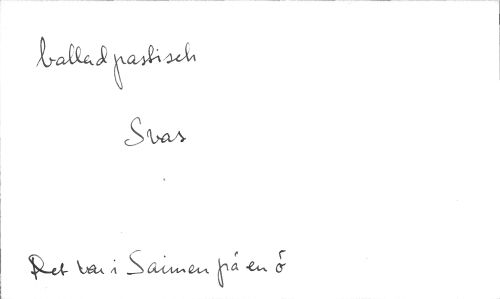 balladpastisch
Svas
Det var i Saimen på en ö